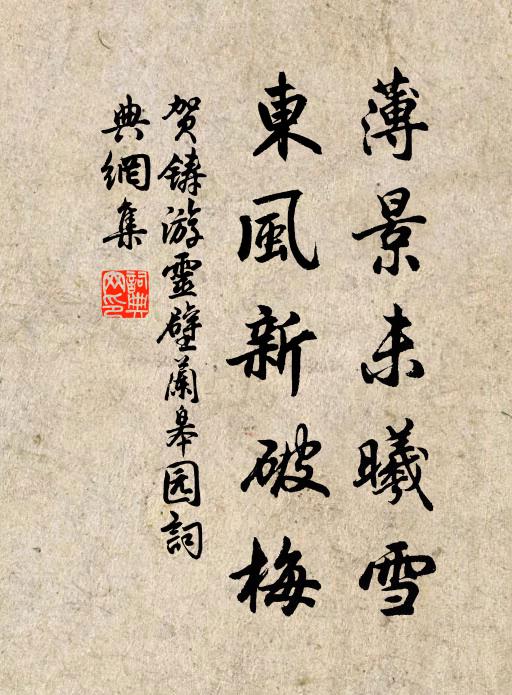 薄景未曦雪
東風新破梅
贺鑄游靈壁蘭皋园詞
典網集
詞典網印